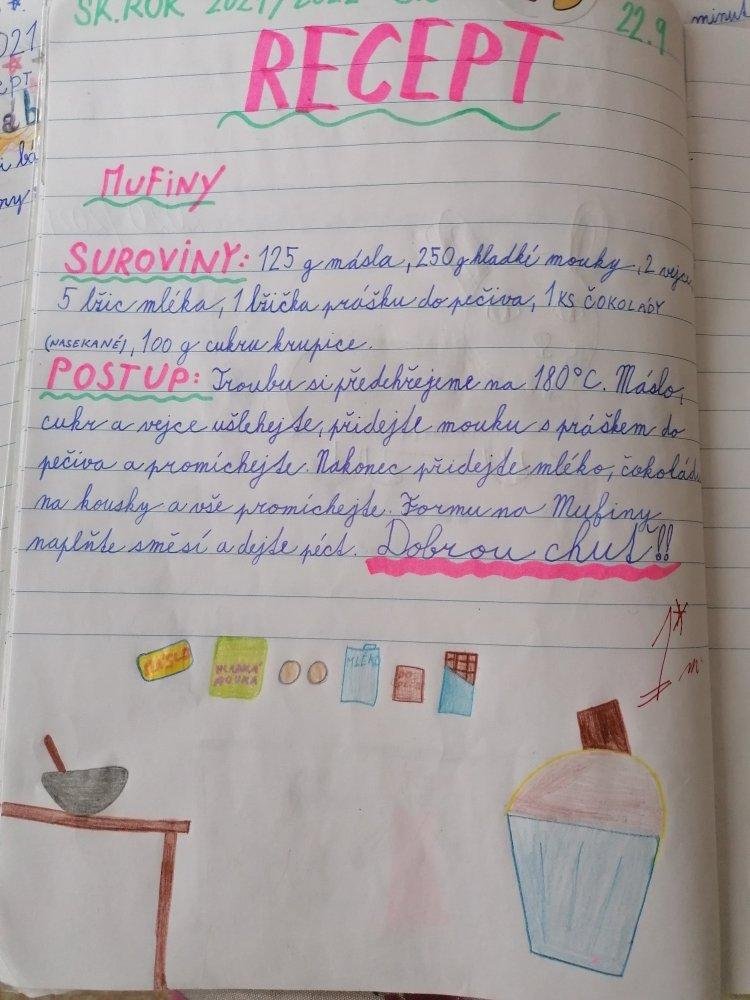 SK.ROK 2021/2022
22.9
RECEPT
MUFINY
SUROVINY: 125 g másla, 250 g hladké mouky, 2 vejce
5 lžic mléka, 1 lžička prášku do pečiva, 1 KS ČOKOLÁDY
(NASEKANÉ), 100 g cukru krupice.
POSTUP: Troubu si předehřejeme na 180°C. Máslo,
cukr a vejce ušlehejte, přidejte mouku s práškem do
pečiva a promíchejte. Nakonec přidejte mléko, čokoládu
na kousky a vše promíchejte. Formu na Mufiny
naplňte směsí a dejte péct. Dobrou chuť!!
1*
MÁSLO
HLADKÁ
MOUKA
MLÉKO
minut
021